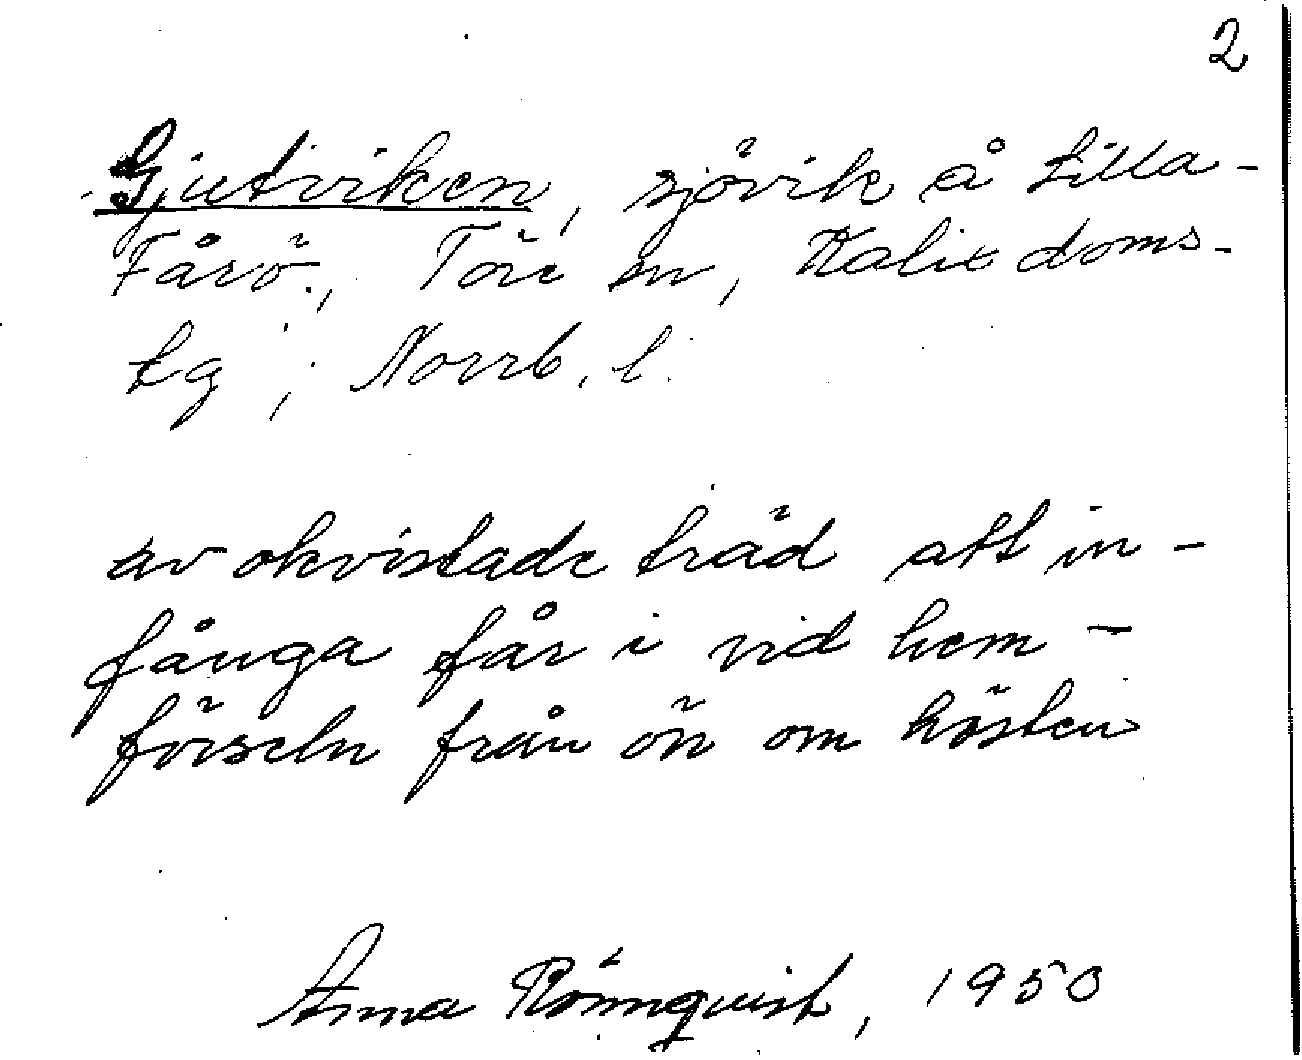 2
Gjutviken, sjövik å Lilla-
Fårö, Töre sn, Kalix doms-
tg; Norrb. l.
av okvistade träd att in-
fånga får i vid hem-
förseln från ön om hösten
Anna Rönnquist, 1950